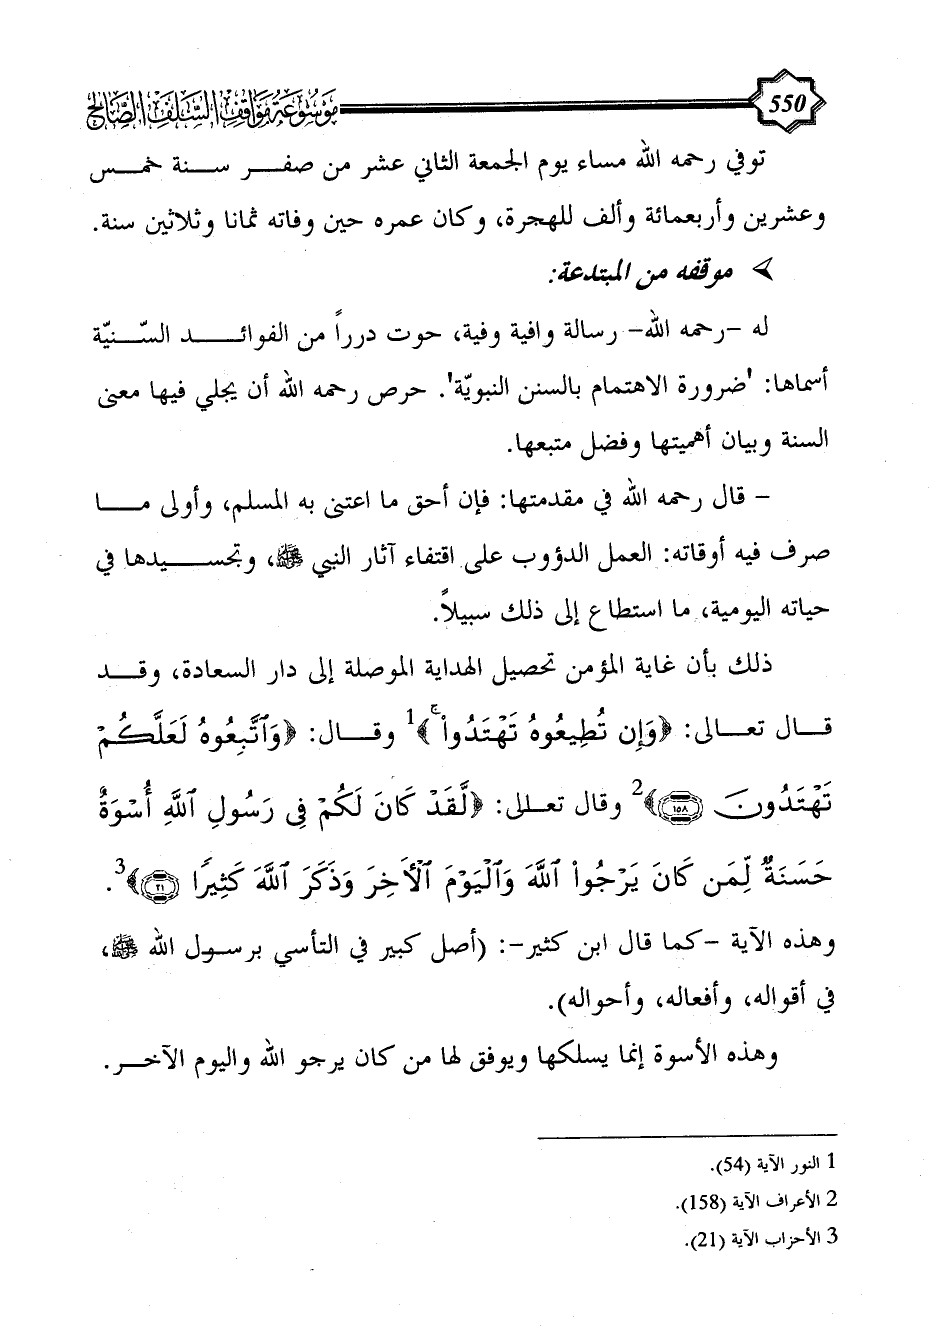 موسوعة مواقف السلف الصالح 550
توفي رحمه الله مساء يوم الجمعة الثاني عشر من صفر سنة خمس
وعشرين وأربعمائة وألف للهجرة، وكان عمره حين وفاته ثمانا وثلاثين سنة.
➢ موقفه من المبتدعة:
له -رحمه الله- رسالة وافية وفية، حوت درراً من الفوائد السّنيّة
أسماها: 'ضرورة الاهتمام بالسنن النبويّة'. حرص رحمه الله أن يجلي فيها معنى
السنة وبيان أهميتها وفضل متبعها.
- قال رحمه الله في مقدمتها: فإن أحق ما اعتنى به المسلم، وأولى ما
صرف فيه أوقاته: العمل الدؤوب على اقتفاء آثار النبي ﷺ، وتجسيدها في
حياته اليومية، ما استطاع إلى ذلك سبيلاً.
ذلك بأن غاية المؤمن تحصيل الهداية الموصلة إلى دار السعادة، وقد
قال تعالى: ﴿وَإِن تُطِيعُوهُ تَهْتَدُواْ ۚ﴾1 وقال: ﴿وَٱتَّبِعُوهُ لَعَلَّكُمْ
تَهْتَدُونَ ١٥٨﴾2 وقال تعالى: ﴿لَّقَدْ كَانَ لَكُمْ فِي رَسُولِ ٱللَّهِ أُسْوَةٌ
حَسَنَةٌ لِّمَن كَانَ يَرْجُواْ ٱللَّهَ وَٱلْيَوْمَ ٱلْأَخِرَ وَذَكَرَ ٱللَّهَ كَثِيرًا ٢١﴾3.
وهذه الآية -كما قال ابن كثير-: (أصل كبير في التأسي برسول الله ﷺ،
في أقواله، وأفعاله، وأحواله).
وهذه الأسوة إنما يسلكها ويوفق لها من كان يرجو الله واليوم الآخر.
1 النور الآية (54).
2 الأعراف الآية (158).
3 الأحزاب الآية (21).